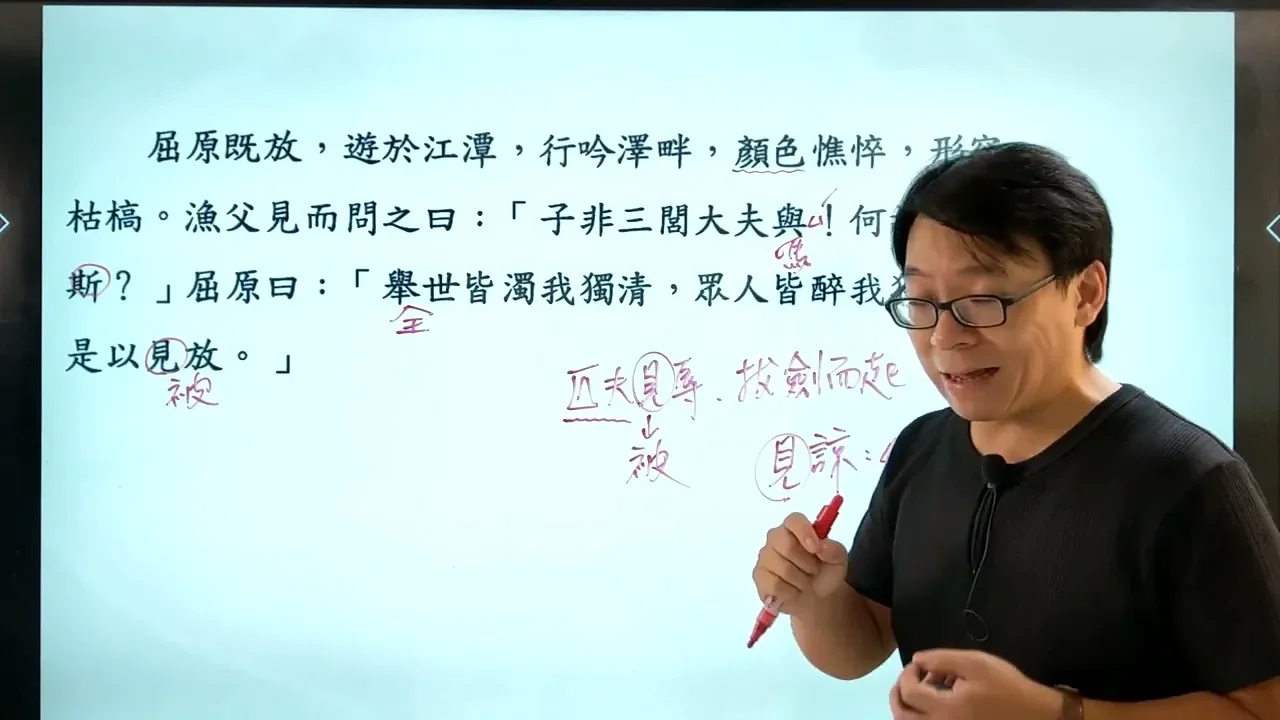 屈原既放，遊於江潭，行吟澤畔，顏色憔悴，形容
枯槁。漁父見而問之曰：「子非三閭大夫與！何
嗎
斯？」屈原曰：「舉世皆濁我獨清，眾人皆醉我
全
是以見放。」
被
匹夫見辱、拔劍而起
被
見諒：